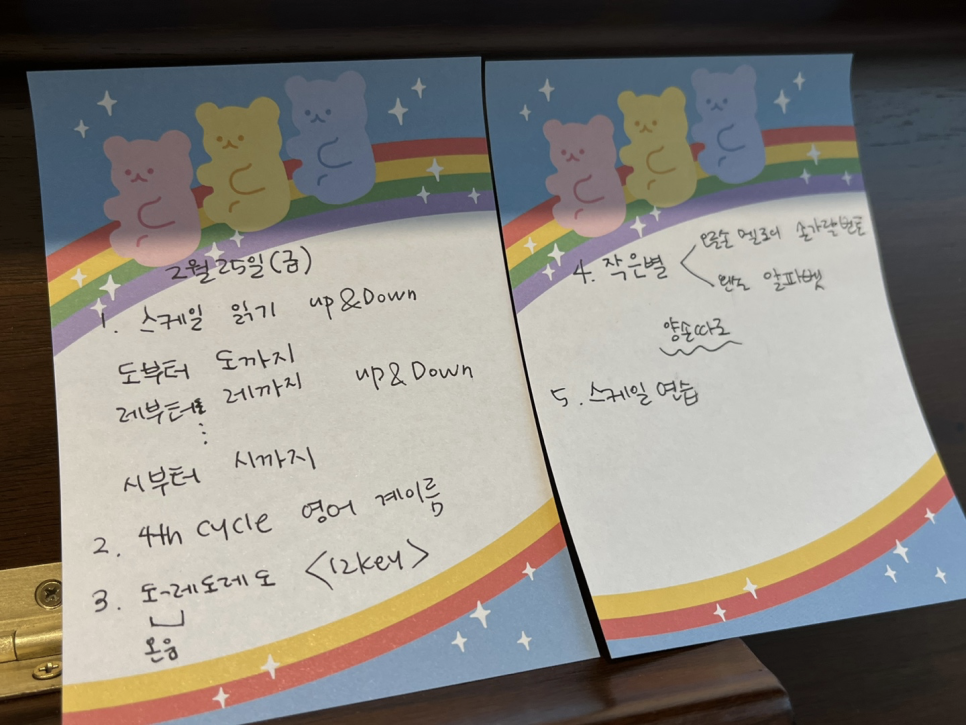 2월 25일(금)
1. 스케일 읽기 up & Down
도부터 도까지
레부터 레까지 up & Down
⋮
시부터 시까지
2. 4th cycle 영어 계이름
3. 도-레도레도 <12key>
온음
4. 작은별
오른손 멜로디 손가락번호
왼손 알파벳
양손따로
5. 스케일 연습